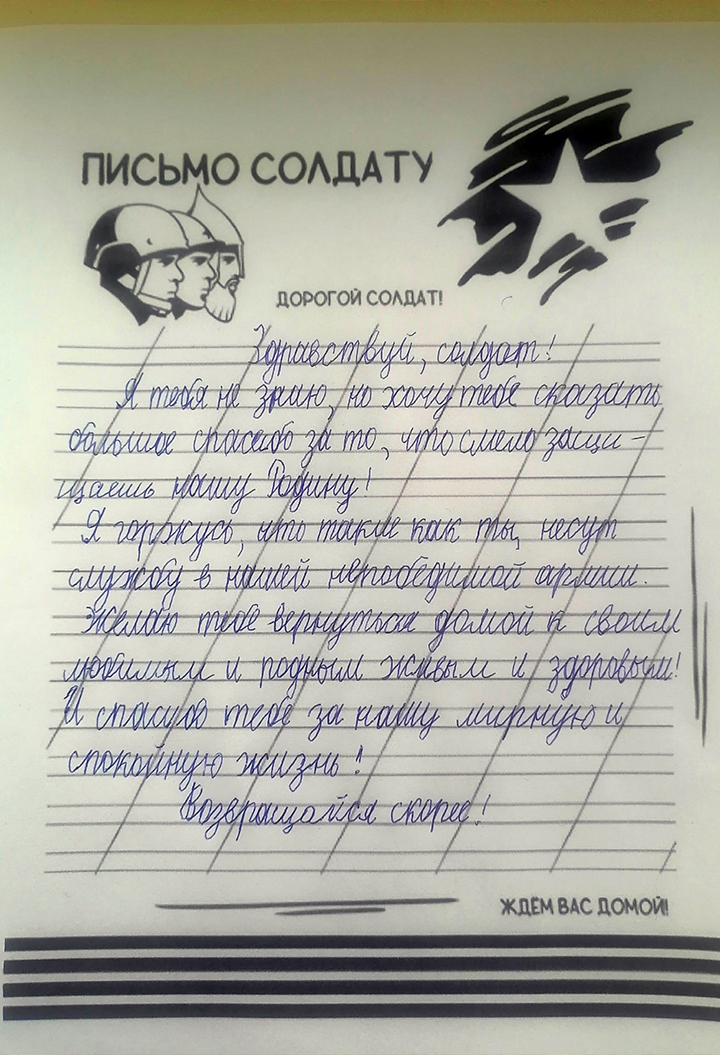 ПИСЬМО СОЛДАТУ
ДОРОГОЙ СОЛДАТ!
Здравствуй, солдат!
Я тебя не знаю, но хочу тебе сказать
большое спасибо за то, что смело защи-
щаешь нашу Родину!
Я горжусь, что такие как ты, несут
службу в нашей непобедимой армии.
Желаю тебе вернуться домой к своим
любимым и родным живым и здоровым!
И спасибо тебе за нашу мирную и
спокойную жизнь!
Возвращайся скорее!
ЖДЁМ ВАС ДОМОЙ!